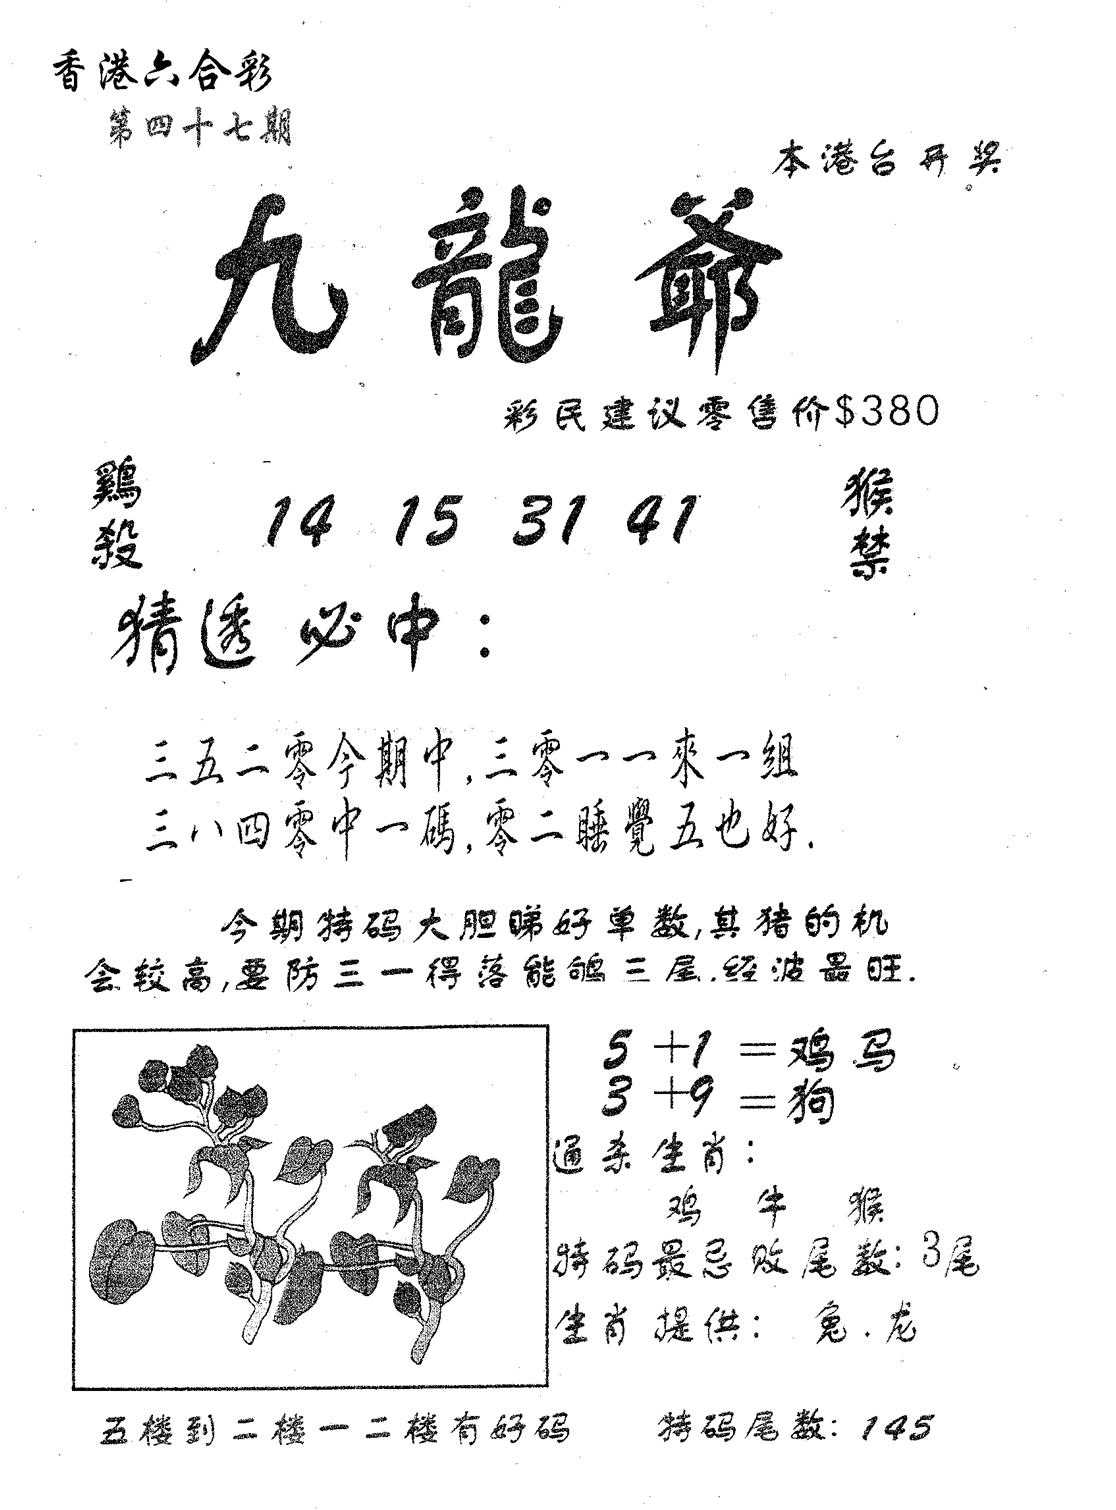 香港六合彩
第四十七期
本港台开奖
九龍爺
彩民建议零售价$380
鷄殺
14 15 31 41
猴禁
猜透必中：
三五二零今期中,三零一一來一組
三八四零中一碼,零二睡覺五也好.
今期特码大胆睇好单数,其猪的机
会较高,要防三一得落能鸲三尾.经波最旺.
5+1=鸡马
3+9=狗
通杀生肖：
鸡 牛 猴
特码最忌败尾数：3尾
生肖提供： 兔.龙
五楼到二楼一二楼有好码
特码尾数：145